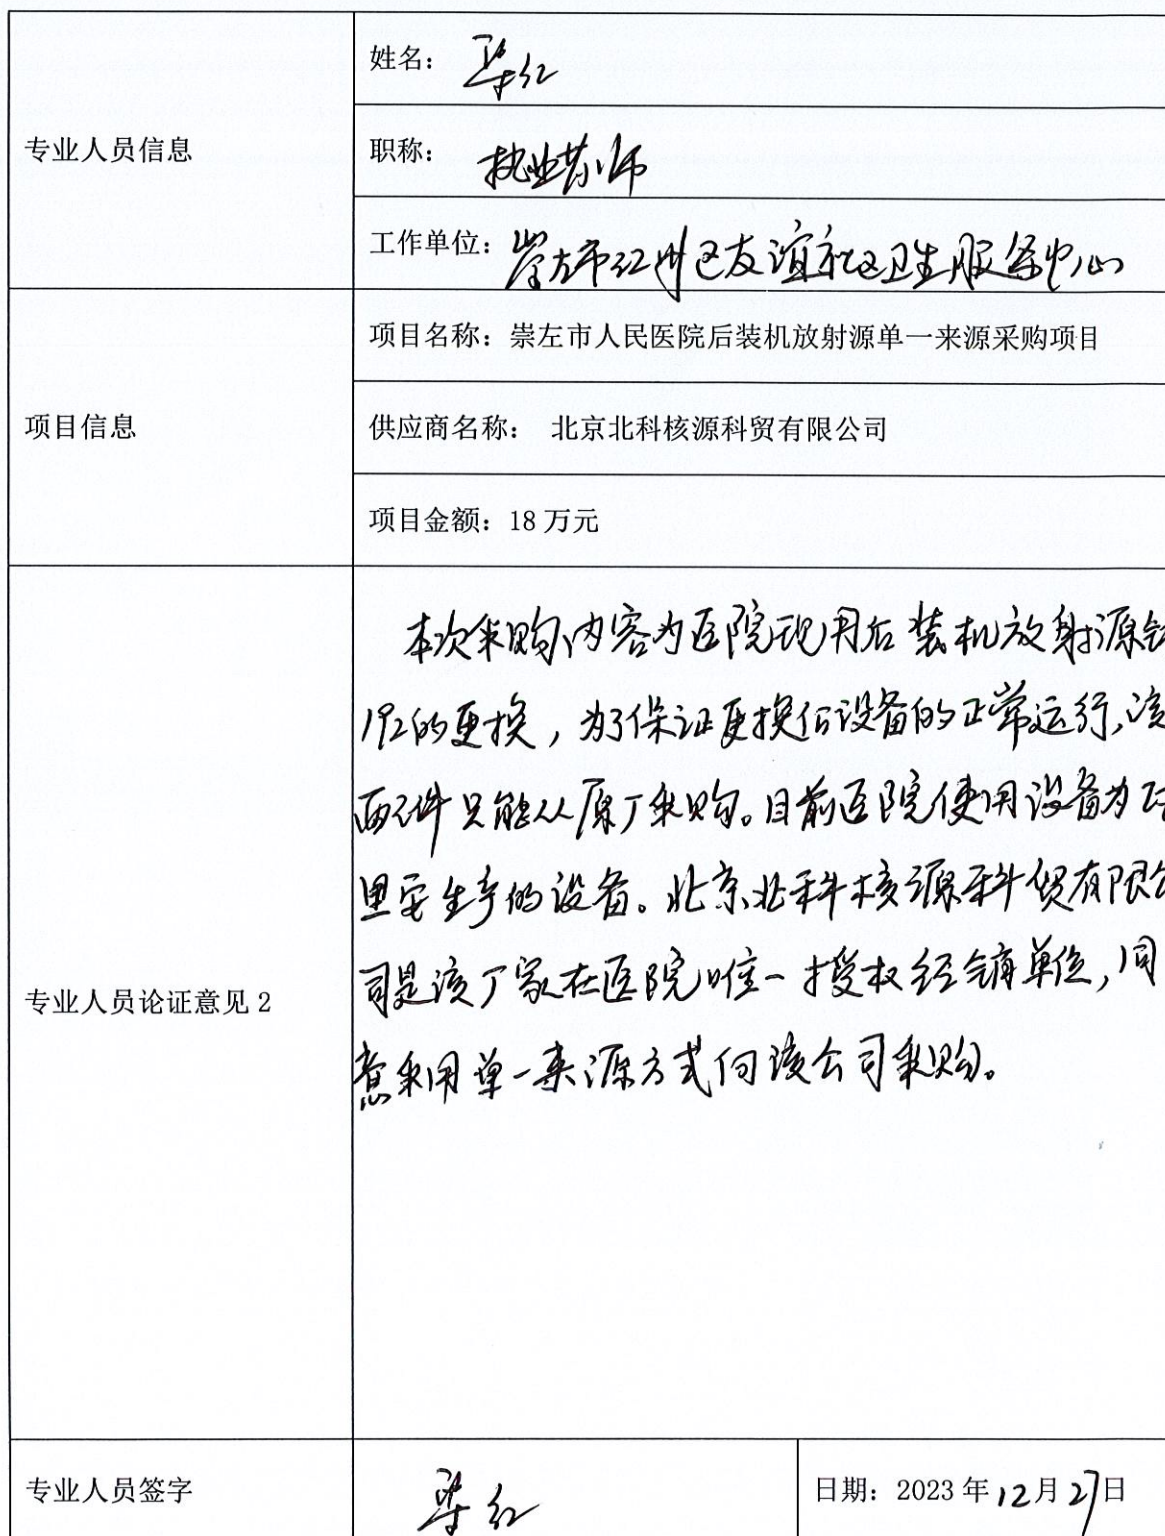 姓名：梁红
专业人员信息
职称：执业药师
工作单位：崇左市江州区友谊社区卫生服务中心
项目名称：崇左市人民医院后装机放射源单一来源采购项目
项目信息
供应商名称： 北京北科核源科贸有限公司
项目金额：18 万元
专业人员论证意见 2
本次采购内容为医院现用后装机放射源铱
192的更换，为了保证更换后设备的正常运行，该
配件只能从原厂采购。目前医院使用设备为
里安生产的设备。北京北科核源科贸有限公
司是该厂家在医院唯一授权经销单位，同
意采用单一来源方式向该公司采购。
专业人员签字
梁红
日期：2023 年 12 月 27 日